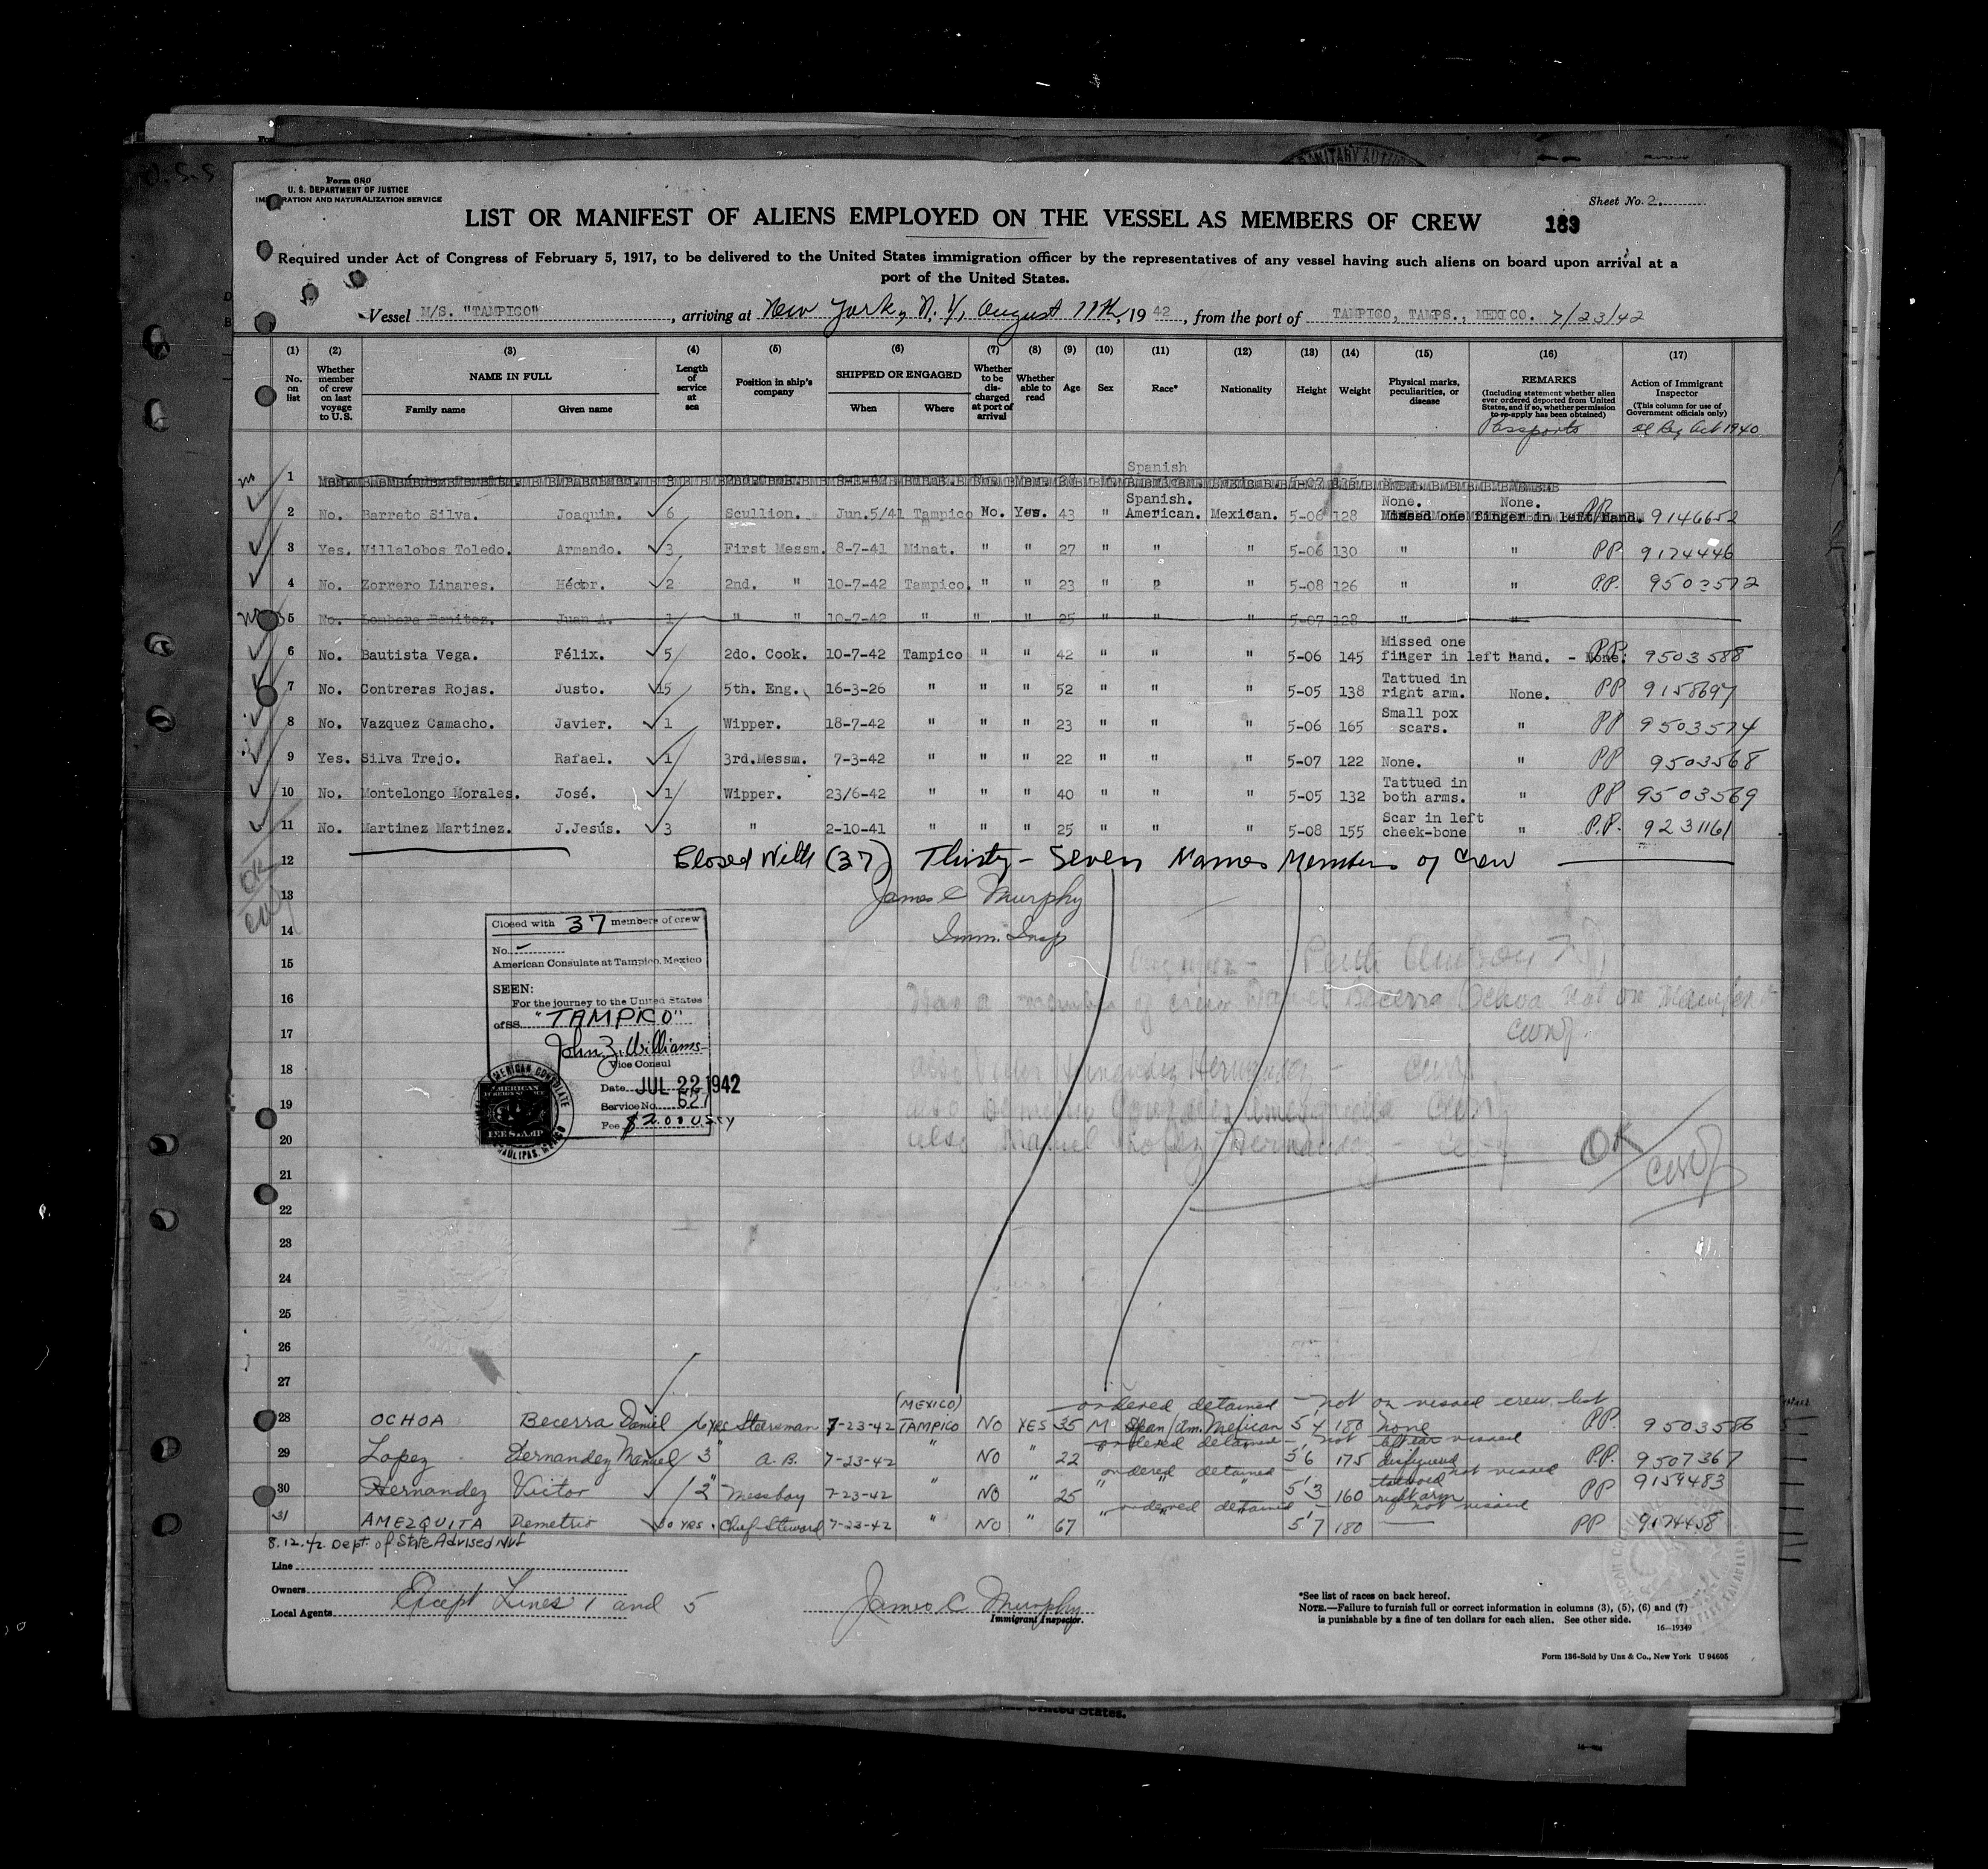 Form 680
U. S. DEPARTMENT OF JUSTICE
IMMIGRATION AND NATURALIZATION SERVICE
Sheet No. 2.
LIST OR MANIFEST OF ALIENS EMPLOYED ON THE VESSEL AS MEMBERS OF CREW
183
Required under Act of Congress of February 5, 1917, to be delivered to the United States immigration officer by the representatives of any vessel having such aliens on board upon arrival at a
port of the United States.
Vessel M/S. "TAMPICO", arriving at New York, N. Y, August 11th, 1942, from the port of TAMPICO, TAMPS., MEXICO. 7/23/42
(1) No. on list
(2) Whether member of crew on last voyage to U.S.
(3) NAME IN FULL Family name Given name
(4) Length of service at sea
(5) Position in ship's company
(6) SHIPPED OR ENGAGED When Where
(7) Whether to be discharged at port of arrival
(8) Whether able to read
(9) Age
(10) Sex
(11) Race*
(12) Nationality
(13) Height
(14) Weight
(15) Physical marks, peculiarities, or disease
(16) REMARKS (Including statement whether alien ever ordered deported from United States, and if so, whether permission to re-apply has been obtained) Passports
(17) Action of Immigrant Inspector (This column for use of Government officials only) al Reg Act 1940
1 Spanish
2 No. Barreto Silva. Joaquin. 6 Scullion. Jun.5/41 Tampico No. Yes. 43 " Spanish. American. Mexican. 5-06 128 None. None. PP 9146652
3 Yes. Villalobos Toledo. Armando. 3 First Messm. 8-7-41 Minat. " " 27 " " " 5-06 130 " " PP 9174446
4 No. Zorrero Linares. Héctor. 2 2nd. " 10-7-42 Tampico. " " 23 " " " 5-08 126 " " P.P. 9503572
5 No. Lombera Benitez. Juan A. 1 " " 10-7-42 " " " 25 " " " 5-07 128 " "
6 No. Bautista Vega. Félix. 5 2do. Cook. 10-7-42 Tampico " " 42 " " " 5-06 145 Missed one finger in left hand. - None. PP. 9503588
7 No. Contreras Rojas. Justo. 15 5th. Eng. 16-3-26 " " " 52 " " " 5-05 138 Tattued in right arm. None. PP 9158697
8 No. Vazquez Camacho. Javier. 1 Wipper. 18-7-42 " " " 23 " " " 5-06 165 Small pox scars. " PP 9503574
9 Yes. Silva Trejo. Rafael. 1 3rd.Messm. 7-3-42 " " " 22 " " " 5-07 122 None. " PP 9503568
10 No. Montelongo Morales. José. 1 Wipper. 23/6-42 " " " 40 " " " 5-05 132 Tattued in both arms. " PP 9503569
11 No. Martinez Martinez. J.Jesús. 3 " 2-10-41 " " " 25 " " " 5-08 155 Scar in left cheek-bone " P.P. 9231161
12 Closed With (37) Thirty-Seven Names Members of Crew
13 James C Murphy
14 Imm. Insp
15
16
17
18
19
20
21
22
23
24
25
26
27
Closed with 37 members of crew
No.
American Consulate at Tampico, Mexico
SEEN:
For the journey to the United States
of SS. "TAMPICO"
John Z. Williams
Vice Consul
Date JUL 22 1942
Service No. 627
Fee $2.00 USCy
AMERICAN CONSULATE
AMERICAN FOREIGN SERVICE
FEE STAMP
Has a member of crew Daniel Becerra Ochoa not on Manifest
also Victor Hernandez
also Demetrio Gonzales Amezquita
also Manuel Lopez Hernandez
OK
(MEXICO) ordered detained - not on visaed crew list
28 OCHOA Becerra Daniel 16 yrs Steersman 7-23-42 TAMPICO NO YES 35 M Span/Am. Mexican 5'4 180 none PP. 9503586
ordered detained - not visaed
29 Lopez Hernandez Manuel 3 " A.B. 7-23-42 " NO " 22 " 5'6 175 left ear disfigured P.P. 9507367
ordered detained - not visaed
30 Hernandez Victor 12 " Messboy 7-23-42 " NO " 25 " 5'3 160 tattooed right arm PP 9159483
ordered detained - not visaed
31 AMEZQUITA Demetrio 30 YRS. Chief Steward 7-23-42 " NO " 67 " 5'7 180 PP 9174458
8.12.42 Dept. of State Advised
Line
Owners
Local Agents
Except Lines 1 and 5
James C. Murphy
Immigrant Inspector.
*See list of races on back hereof.
NOTE.—Failure to furnish full or correct information in columns (3), (5), (6) and (7)
is punishable by a fine of ten dollars for each alien. See other side.
16—19349
Form 136-Sold by Unz & Co., New York U 94605
United States.